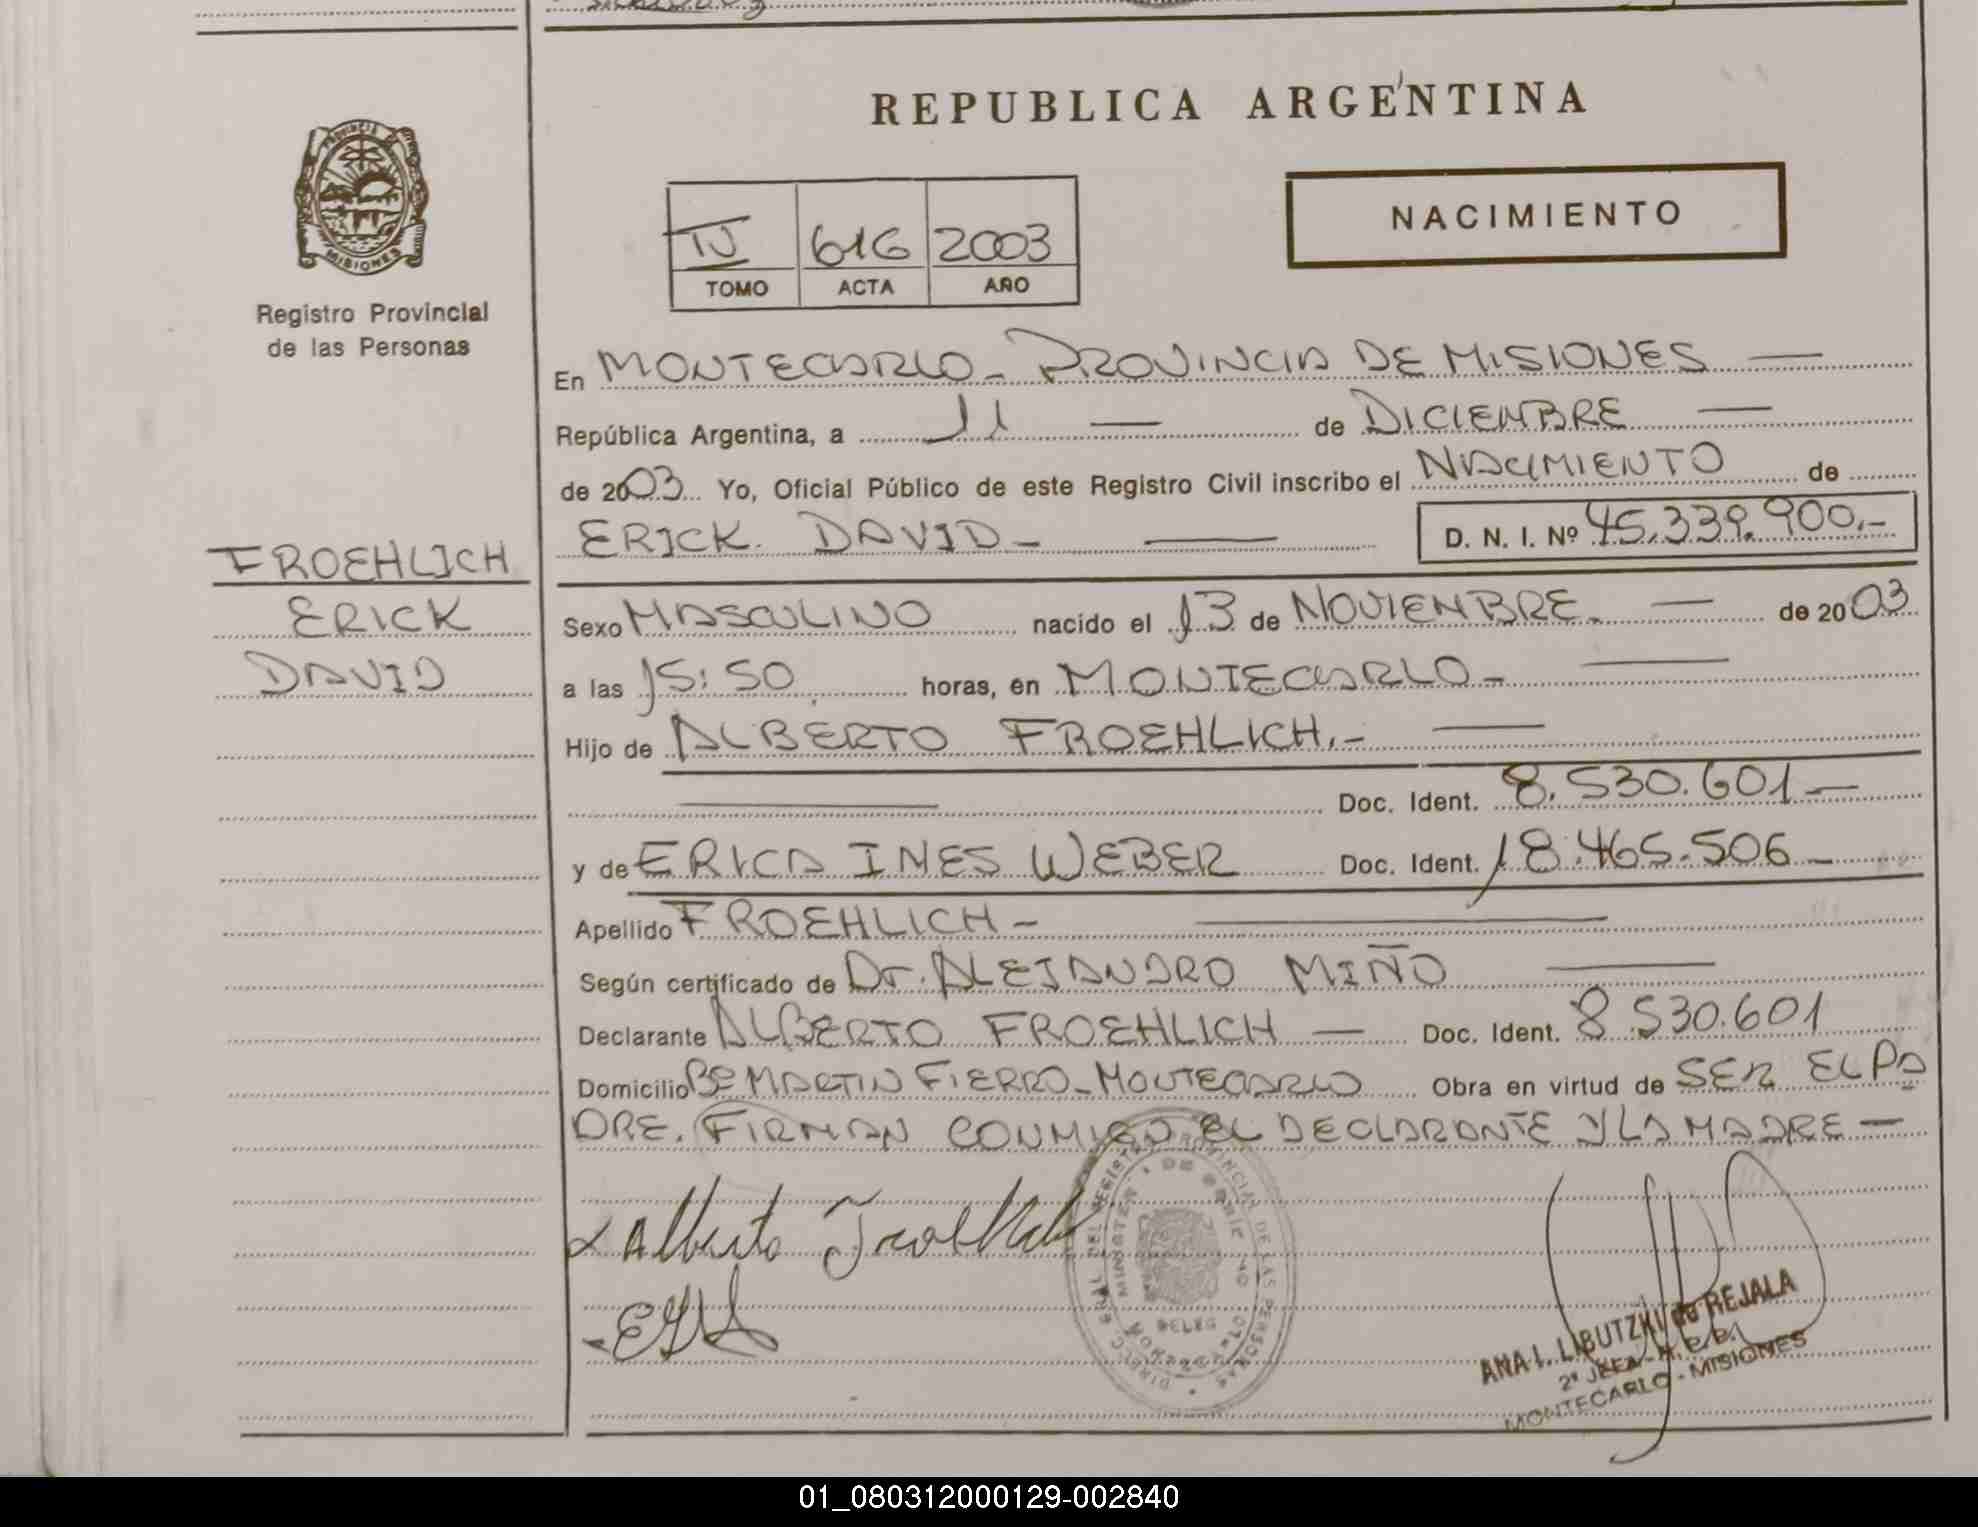 REPUBLICA ARGENTINA
PROVINCIA DE
MISIONES
Registro Provincial
de las Personas
IV 616 2003
TOMO ACTA AÑO
NACIMIENTO
En MONTECARLO - PROVINCIA DE MISIONES —
República Argentina, a 11 — de DICIEMBRE —
de 2003 Yo, Oficial Público de este Registro Civil inscribo el NACIMIENTO de
ERICK DAVID - — D. N. I. Nº 45.339.900.-
FROEHLICH
ERICK
DAVID
Sexo MASCULINO nacido el 13 de NOVIENBRE. — de 2003
a las 15:50 horas, en MONTECARLO - —
Hijo de ALBERTO FROEHLICH.- —
— Doc. Ident. 8.530.601 —
y de ERICA INES WEBER Doc. Ident. 18.465.506 -
Apellido FROEHLICH - —
Según certificado de Dr. ALEJANDRO MIÑO —
Declarante ALBERTO FROEHLICH — Doc. Ident. 8.530.601
Domicilio Bº MARTIN FIERRO - MONTECARLO Obra en virtud de SER EL PA
DRE. FIRMAN CONMIGO EL DECLARANTE Y LA MADRE —
Alberto Froehlich
REGISTRO PROVINCIAL DE LAS PERSONAS
ANA I. LIBUTZKI de REJALA
2º JEFA
MONTECARLO - MISIONES
01_080312000129-002840